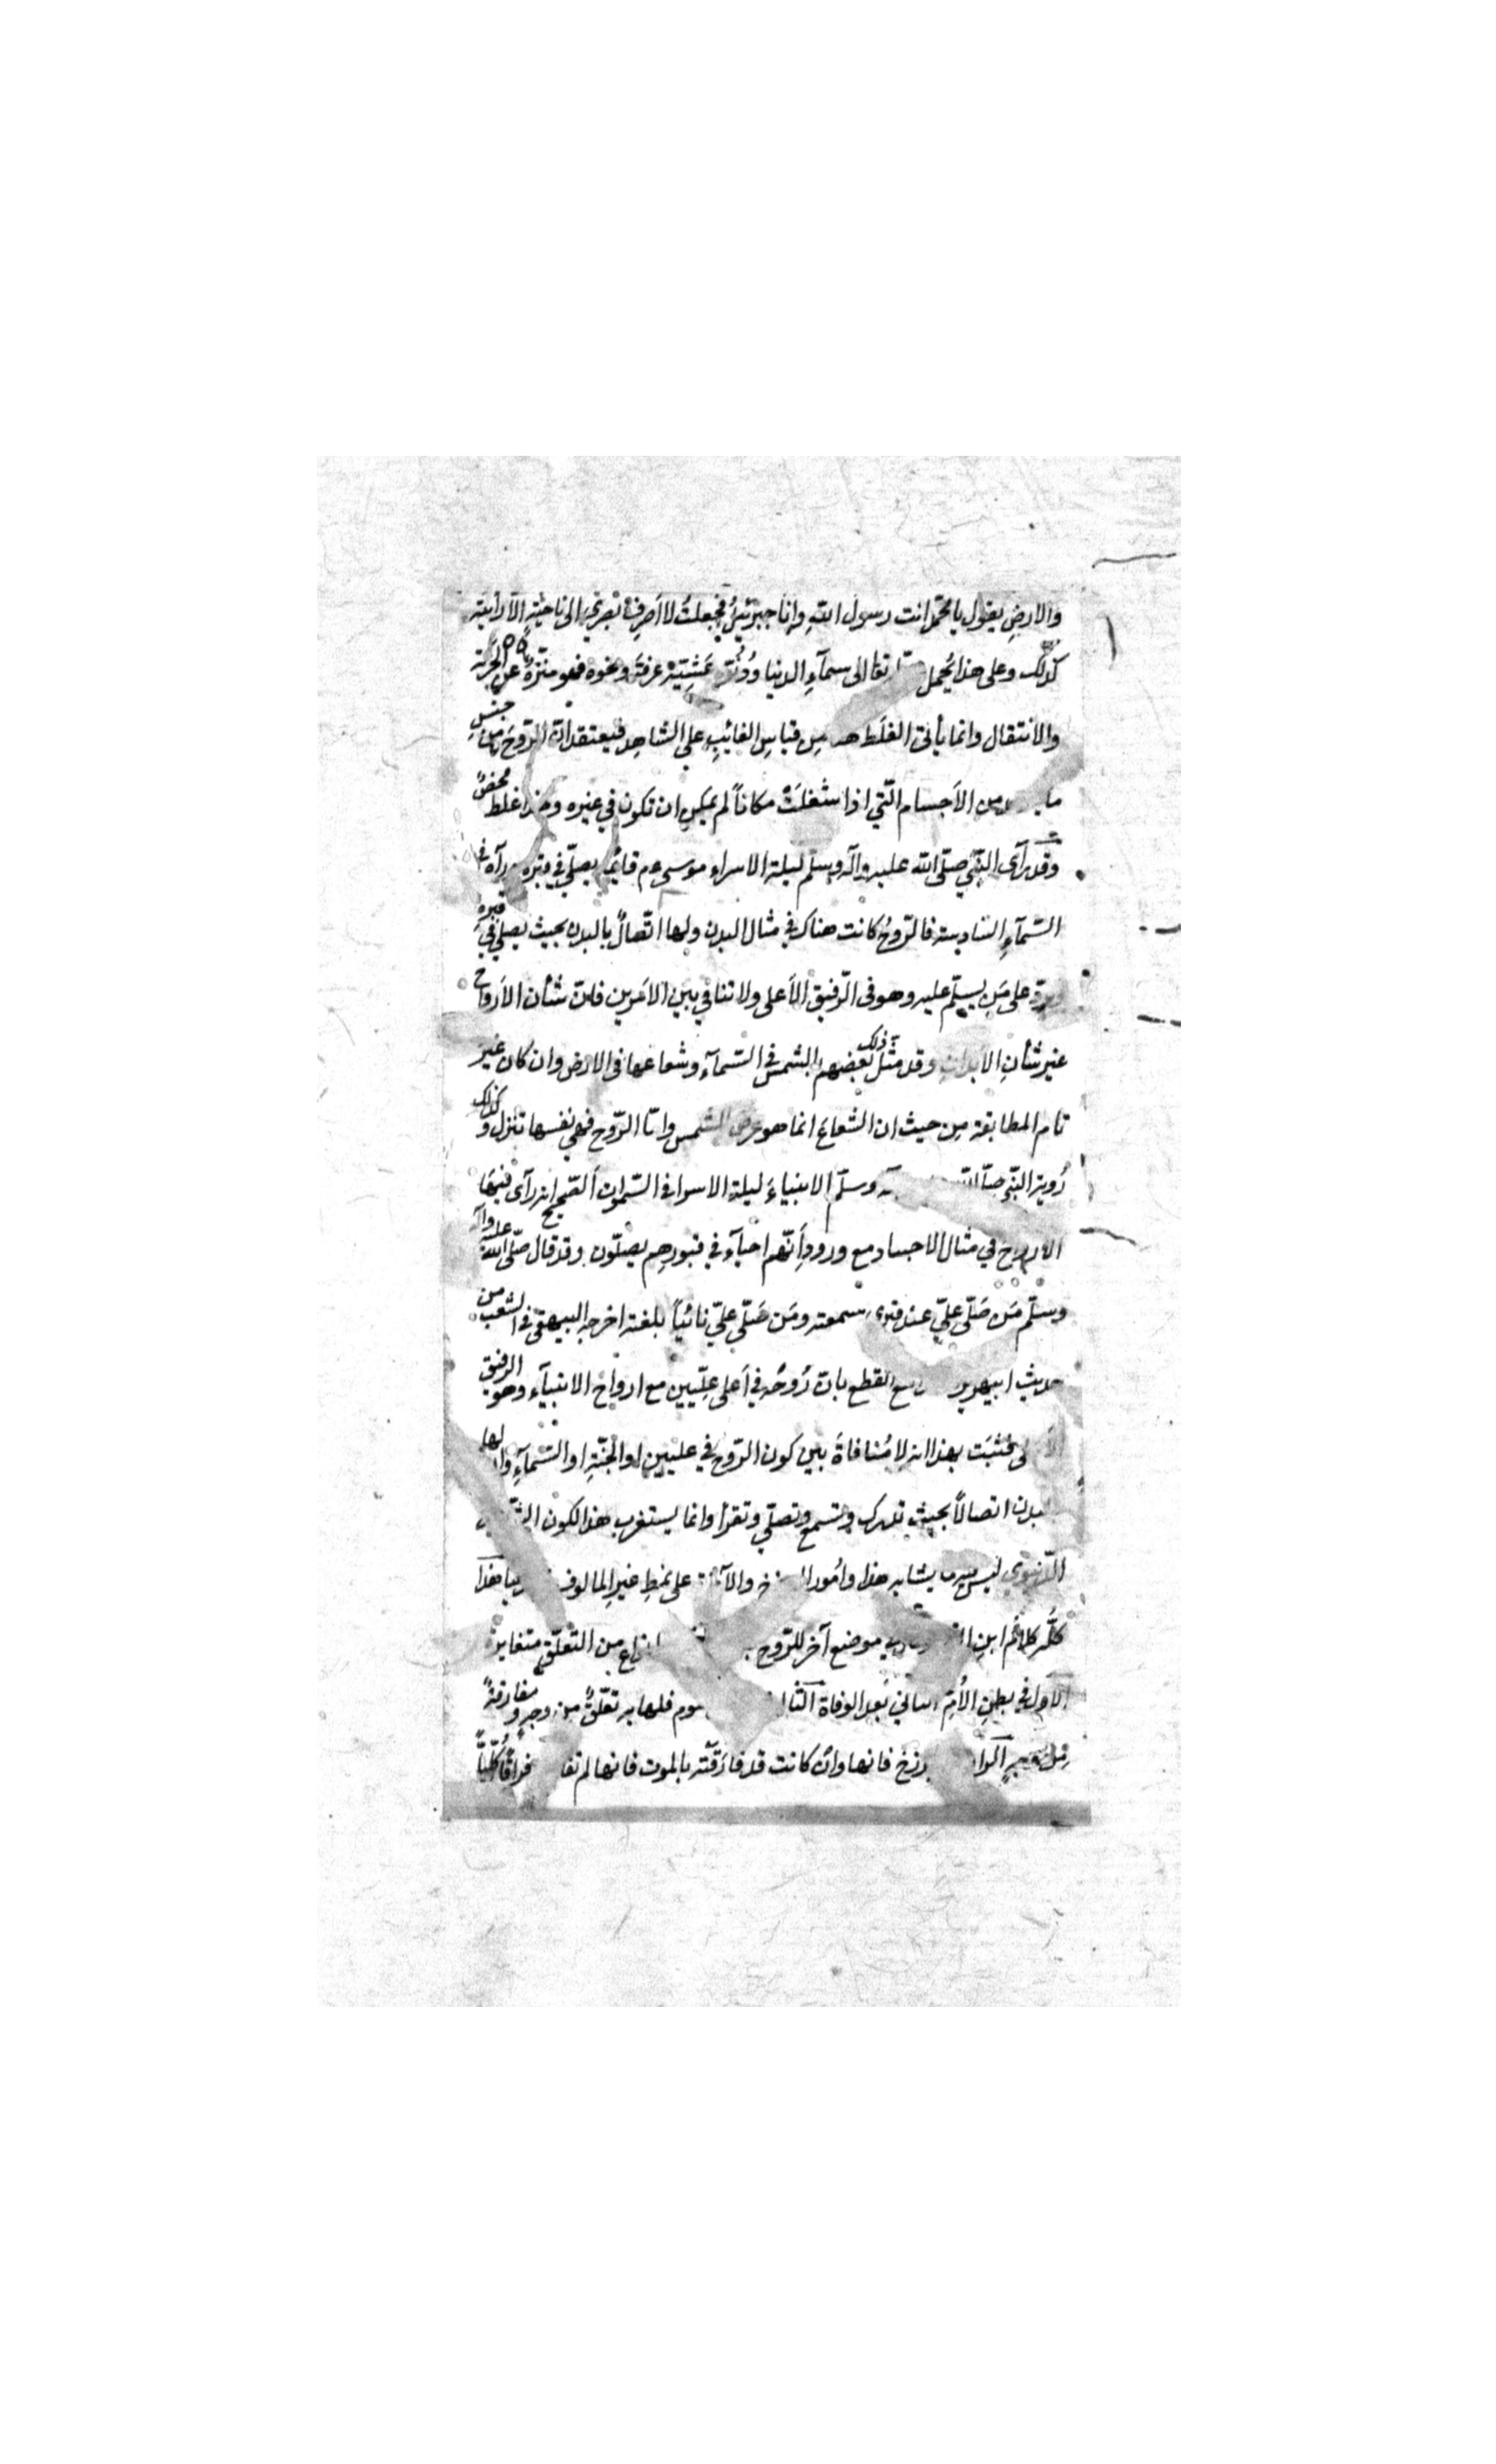 والارضِ يقول يا محمّد انت رسول اللّهِ وانا جبرئيلُ فجعلتُ لا اَصرِفُ بصري الى ناحيةٍ الّا رأيته
كذلك وعلى هذا يُحمل تعا الى سمآءِ الدنيا ودُنُوّه عَشِيّةَ عرفةَ ونحوه فهو منزّهٌ عن الحركة
والانتقال وانما يأتى الغلَط هنا مِن قياسِ الغائبِ على الشاهِد فيعتقد انّ الرّوحَ من جنسِ
ما من الاَجسام الّتي اذا شغلَتْ مكاناً لم يمكن ان تكون في غيره وهذا غلط محضٌ
وقد رآى النّبيّ صلّى اللّه عليه وآله وسلّم ليلة الاسراء موسى عم قائما يصلّي في قبره ورآه في
السّمآءِ السّادسة فالرّوحُ كانت هناك في مثال البدن ولها اتّصالٌ بالبدن بحيث يصلّي في قبرهِ
ويردّ على مَن يسلّم عليه وهو فى الرّفيق الاَعلى ولا تنافي بين الامرين فانّ شأن الارواح
غير شأنِ الابدانِ وقد مثّل ذلك بعضهم بالشمس في السّمآء وشعاعها في الارض وان كان غيرَ
تام المطابقة مِن حيث ان الشعاع انما هو عرض الشمس وامّا الرّوح فهي نفسها تنزل وكذلك
رُوية النّبي صلّى اللّه وآله وسلّم الانبياءَ ليلة الاسرا في السّموات الصّحيح انه رآى فيها
الارواح في مثال الاجساد مع ورود اَنّهم احيآء في قبورهم يصلّون وقد قال صلّى اللّه عليه وآله
وسلّم مَن صَلّى عليّ عند قبري سمعته ومَن صَلّى عليّ نائياً بلغته اخرجه البيهقي في الشعب من
حديث ابيهريرة مع القطع بانّ رُوحَه في اَعلى عِلّيين مع ارواح الانبيآء وهو الرفيق
الأعلى فثبَت بهذا انه لا مُنافاةَ بين كون الرّوح في عليين او الجنّة او السّمآءِ وان لها
بالبدن اتصالاً بحيث تدرك وتسمع وتصلّي وتقرا وانما يستغرب هذا لكون الشّاهد
الدّنيوي ليس فيه ما يشابه هذا واُمور البرزخ والآخرة على نمطِ غيرِ المالوف هذا
كلُّه كلامُ ابنِ القيّم وقال في موضعٍ آخر للرّوحِ انواع من التعلّقِ متغايرة
الاوّل في بطنِ الاُمّ الثاني بَعد الوفاة الثالث النوم فلها به تعلّقٌ من وجهٍ ومفارقةٌ
مِن وجهٍ الرابع البرزخ فانها وان كانت قد فارَقَتْه بالموت فانها لم تفارقه فراقاً كُلّيّاً